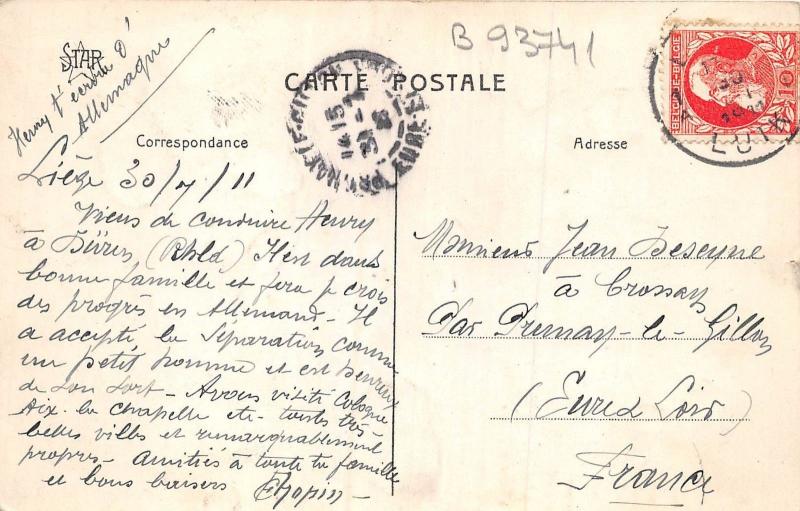 B 93741
STAR
CARTE POSTALE
Henry t'écrira d'
Allemagne
Correspondance
Adresse
BELGIE-BELGIQUE
10
14 15
31 - 7
EURE-
LUIK
Liège 30/7/11
Viens de conduire Henry
à Düren (Rhld) Il est dans
bonne famille et fera je crois
des progrès en Allemand - Il
a accepté la Séparation comme
un petit homme et est heureux
de son sort - Avons visité Cologne
Aix-la chapelle etc - toutes très
belles villes et remarquablement
propres - Amitiés à toute ta famille
et bons baisers
Monsieur Jean
à Crossay
Par Prunay-le-Gillon
(Eure & Loir)
France